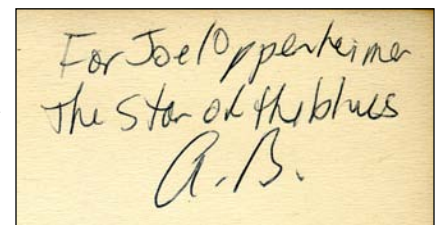 For Joel Oppenheimer
The Star of the blues
A.B.